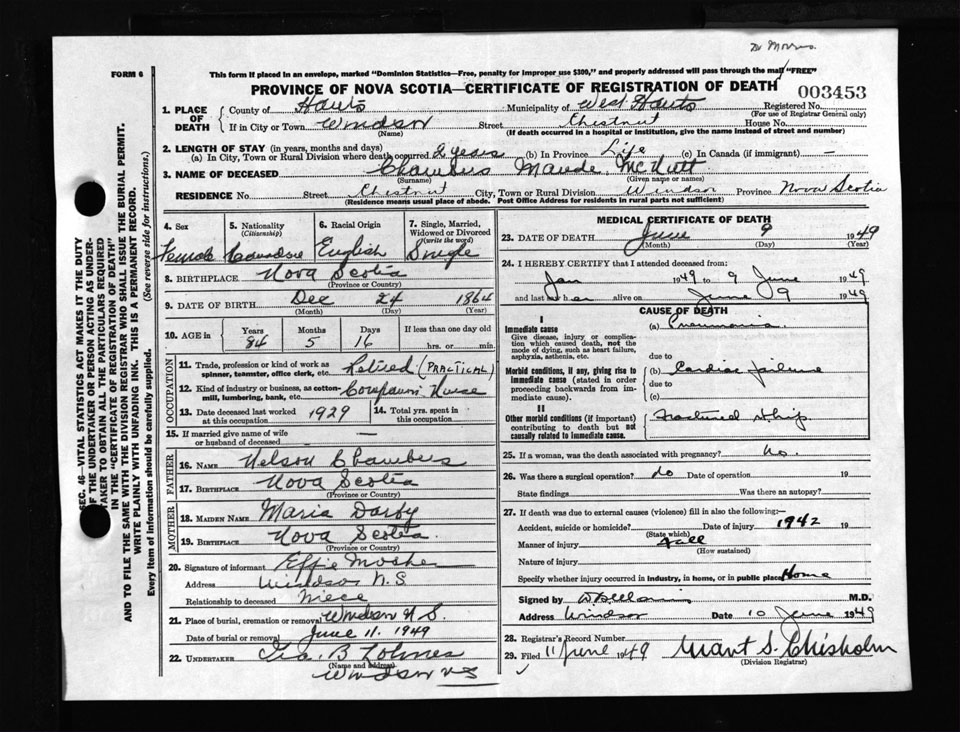 Dr Morris.
FORM 6
This form if placed in an envelope, marked "Dominion Statistics—Free, penalty for improper use $300," and properly addressed will pass through the mail "FREE"
PROVINCE OF NOVA SCOTIA—CERTIFICATE OF REGISTRATION OF DEATH
003453
1. PLACE OF DEATH
County of Hants Municipality of West Hants Registered No.
(For use of Registrar General only)
If in City or Town Windsor Street Chestnut House No.
(Name) (If death occurred in a hospital or institution, give the name instead of street and number)
2. LENGTH OF STAY (in years, months and days)
(a) In City, Town or Rural Division where death occurred 2 years (b) In Province Life (c) In Canada (if immigrant) —
3. NAME OF DECEASED Chambers Maude McNutt
(Surname) (Given name or names)
RESIDENCE No. Street Chestnut City, Town or Rural Division Windsor Province Nova Scotia
(Residence means usual place of abode. Post Office Address for residents in rural parts not sufficient)
4. Sex Female
5. Nationality (Citizenship) Canadian
6. Racial Origin English
7. Single, Married, Widowed or Divorced (write the word) Single
8. BIRTHPLACE Nova Scotia
(Province or Country)
9. DATE OF BIRTH Dec 24 1864
(Month) (Day) (Year)
10. AGE in Years 84 Months 5 Days 16 If less than one day old hrs. or min.
OCCUPATION
11. Trade, profession or kind of work as spinner, teamster, office clerk, etc. Retired (PRACTICAL)
12. Kind of industry or business, as cotton-mill, lumbering, bank, etc. Nurse
13. Date deceased last worked at this occupation 1929
14. Total yrs. spent in this occupation
15. If married give name of wife or husband of deceased —
FATHER
16. NAME Nelson Chambers
17. BIRTHPLACE Nova Scotia
(Province or Country)
MOTHER
18. MAIDEN NAME Maria Darby
19. BIRTHPLACE Nova Scotia.
(Province or Country)
20. Signature of informant Effie Mosher
Address Windsor N.S
Relationship to deceased Niece
21. Place of burial, cremation or removal Windsor N S.
Date of burial or removal June 11. 1949
22. UNDERTAKER Ira. B Lohnes
(Name and address)
Windsor NS
MEDICAL CERTIFICATE OF DEATH
23. DATE OF DEATH June 9 1949
(Month) (Day) (Year)
24. I HEREBY CERTIFY that I attended deceased from:
Jan 1949 to 9 June 1949
and last saw her alive on June 9 1949
CAUSE OF DEATH
I
Immediate cause
Give disease, injury or complication which caused death, not the mode of dying, such as heart failure, asphyxia, asthenia, etc.
(a) Pneumonia.
due to
Morbid conditions, if any, giving rise to immediate cause (stated in order proceeding backwards from immediate cause).
(b) Cardiac failure
due to
(c)
II
Other morbid conditions (if important) contributing to death but not causally related to immediate cause.
Fractured Hip
25. If a woman, was the death associated with pregnancy? No.
26. Was there a surgical operation? no Date of operation 19
State findings Was there an autopsy?
27. If death was due to external causes (violence) fill in also the following:—
Accident, suicide or homicide? Date of injury 1942 19
(State which)
Manner of injury Fall
(How sustained)
Nature of injury
Specify whether injury occurred in industry, in home, or in public place Home
Signed by M.D.
Address Windsor Date 10 June 1949
28. Registrar's Record Number
29. Filed 11 June 1949 Grant S. Chisholm
(Division Registrar)
SEC. 46—VITAL STATISTICS ACT MAKES IT THE DUTY
OF THE UNDERTAKER OR PERSON ACTING AS UNDER-
TAKER TO OBTAIN ALL THE PARTICULARS REQUIRED
IN THE "CERTIFICATE OF REGISTRATION OF DEATH"
AND TO FILE THE SAME WITH THE DIVISION REGISTRAR WHO SHALL ISSUE THE BURIAL PERMIT.
WRITE PLAINLY WITH UNFADING INK. THIS IS A PERMANENT RECORD.
Every item of information should be carefully supplied. (See reverse side for instructions.)